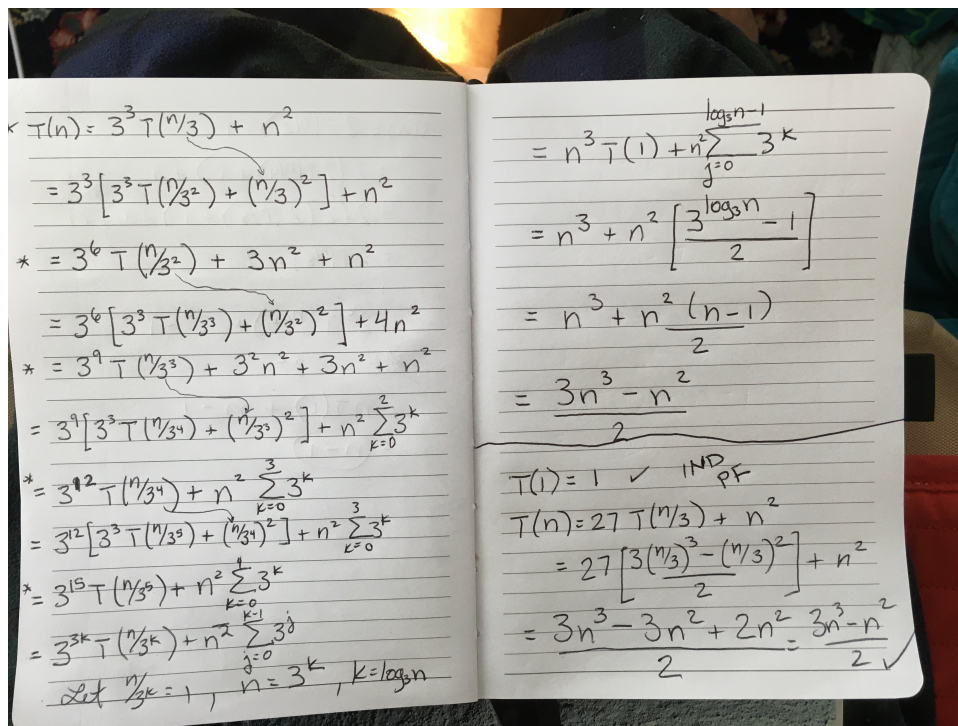 * T(n) = 3³ T(n/3) + n²
= 3³ [3³ T(n/3²) + (n/3)²] + n²
* = 3⁶ T(n/3²) + 3n² + n²
= 3⁶ [3³ T(n/3³) + (n/3²)²] + 4n²
* = 3⁹ T(n/3³) + 3²n² + 3n² + n²
= 3⁹ [3³ T(n/3⁴) + (n/3³)²] + n² ∑_{k=0}^{2} 3^k
* = 3¹² T(n/3⁴) + n² ∑_{k=0}^{3} 3^k
= 3¹² [3³ T(n/3⁵) + (n/3⁴)²] + n² ∑_{k=0}^{3} 3^k
* = 3¹⁵ T(n/3⁵) + n² ∑_{k=0}^{4} 3^k
= 3^{3k} T(n/3^k) + n² ∑_{j=0}^{k-1} 3^j
Let n/3^k = 1, n = 3^k, k = log₃n
= n³ T(1) + n² ∑_{j=0}^{log₃n-1} 3^k
= n³ + n² [(3^{log₃n} - 1)/2]
= n³ + n² (n-1)/2
= (3n³ - n²)/2
T(1) = 1 ✓ IND PF
T(n) = 27 T(n/3) + n²
= 27 [(3(n/3)³ - (n/3)²)/2] + n²
= (3n³ - 3n² + 2n²)/2 = (3n³ - n²)/2 ✓